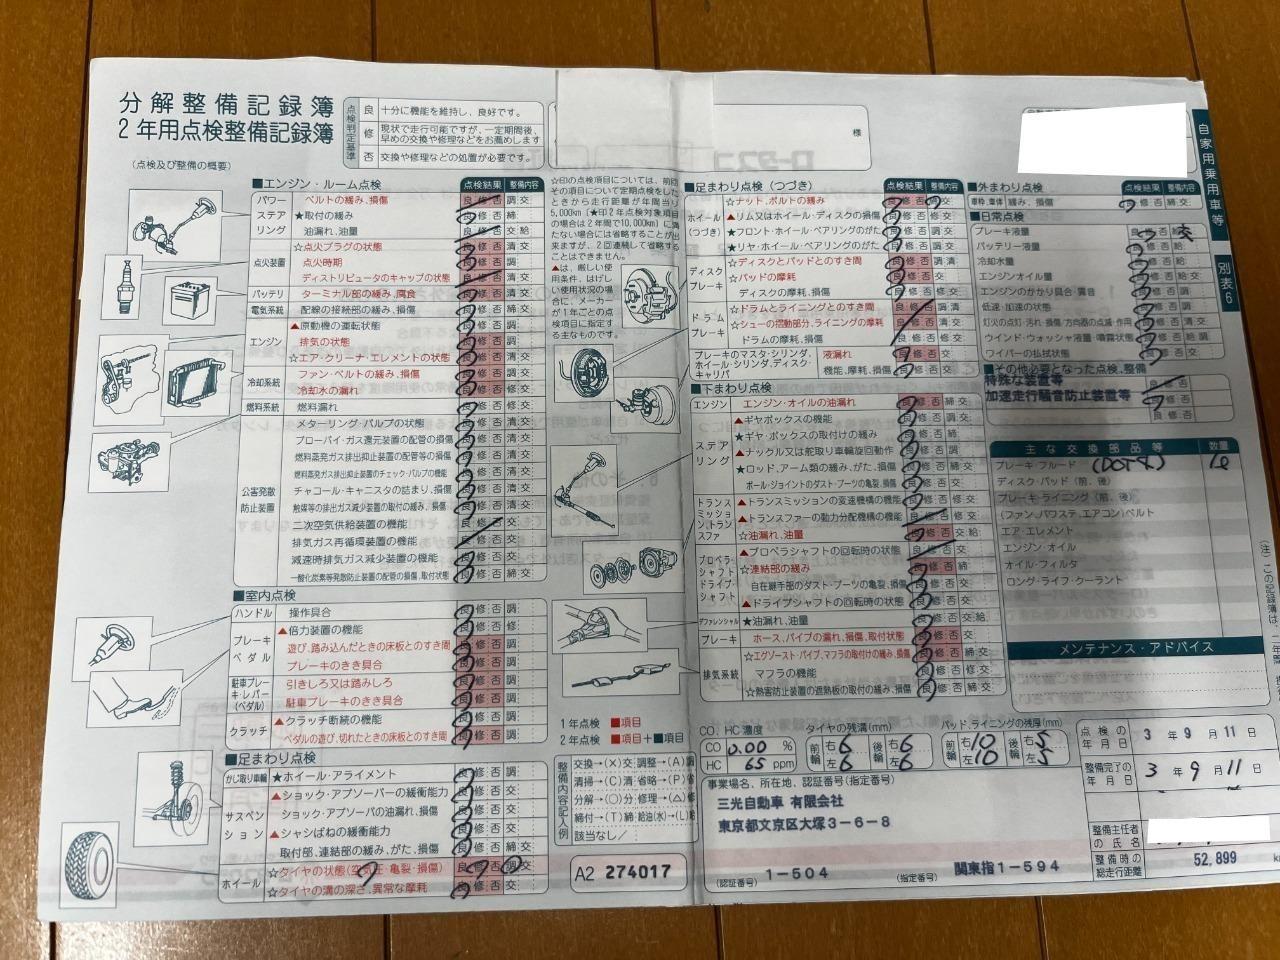 分解整備記録簿
2年用点検整備記録簿
(点検及び整備の概要)
点検判定基準
良 十分に機能を維持し、良好です。
修 現状で走行可能ですが、一定期間後、早めの交換や修理などをお薦めします
否 交換や修理などの処置が必要です。
様
自家用乗用車等
別表6
■エンジン・ルーム点検 点検結果 整備内容
パワーステアリング
ベルトの緩み、損傷 良 修 否 調 交
★取付の緩み 良 修 否 締
油漏れ、油量 良 修 否 交 給
点火装置
☆点火プラグの状態
点火時期
ディストリビュータのキャップの状態
バッテリ ターミナル部の緩み、腐食
電気系統 配線の接続部の緩み、損傷
エンジン
▲原動機の運転状態
排気の状態
☆エア・クリーナ・エレメントの状態
冷却系統
ファン・ベルトの緩み、損傷
冷却水の漏れ
燃料系統 燃料漏れ
公害発散防止装置
メターリング・バルブの状態
ブローバイ・ガス還元装置の配管の損傷
燃料蒸発ガス排出抑止装置の配管等の損傷
燃料蒸発ガス排出抑止装置のチェック・バルブの機能
チャコール・キャニスタの詰まり、損傷
触媒等の排出ガス減少装置の取付の緩み、損傷
二次空気供給装置の機能
排気ガス再循環装置の機能
減速時排気ガス減少装置の機能
一酸化炭素等発散防止装置の配管の損傷、取付状態
■室内点検
ハンドル 操作具合
ブレーキペダル
▲倍力装置の機能
遊び、踏み込んだときの床板とのすき間
ブレーキのきき具合
駐車ブレーキ・レバー(ペダル)
引きしろ又は踏みしろ
駐車ブレーキのきき具合
クラッチ
▲クラッチ断続の機能
ペダルの遊び、切れたときの床板とのすき間
■足まわり点検
かじ取り車輪 ★ホイール・アライメント
サスペンション
▲ショック・アブソーバーの緩衝能力
ショック・アブソーバの油漏れ、損傷
▲シャシばねの緩衝能力
取付部、連結部の緩み、がた、損傷
ホイール
☆タイヤの状態(空気圧・亀裂・損傷)
☆タイヤの溝の深さ、異常な摩耗
☆印の点検項目については、前回その項目について定期点検をしたときから走行距離が年間当り5,000km(★印2年点検対象項目は2年間で10,000km)に満たない場合には省略することが出来ますが、2回連続して省略することはできません。
▲は、厳しい使用条件、はげしい使用状況の場合に、メーカーが1年ごとの点検項目に指定する主なものです。
1年点検 ■項目
2年点検 ■項目+■項目
整備内容記入例
交換→(×)交 調整→(A)調
清掃→(C)清 省略→(P)省
分解→(○)分 修理→(△)修
締付→(T)締 給油(水)→(L)給
該当なし/
A2 274017
■足まわり点検(つづき) 点検結果 整備内容
ホイール(つづき)
☆ナット、ボルトの緩み
▲リム又はホイール・ディスクの損傷
★フロント・ホイール・ベアリングのがた
★リヤ・ホイール・ベアリングのがた
ディスクブレーキ
☆ディスクとパッドとのすき間
☆パッドの摩耗
ディスクの摩耗、損傷
ドラムブレーキ
☆ドラムとライニングとのすき間
☆シューの摺動部分、ライニングの摩耗
ドラムの摩耗、損傷
ブレーキのマスタ・シリンダ、ホイール・シリンダ、ディスク・キャリパ
液漏れ
機能、摩耗、損傷
■下まわり点検
エンジン エンジン・オイルの油漏れ
ステアリング
▲ギヤボックスの機能
★ギヤ・ボックスの取付けの緩み
▲ナックル又は舵取り車輪旋回動作
★ロッド、アーム類の緩み、がた、損傷
ボール・ジョイントのダスト・ブーツの亀裂、損傷
トランスミッション、トランスファ
▲トランスミッションの変速機構の機能
▲トランスファーの動力分配機構の機能
☆油漏れ、油量
プロペラ・シャフト ドライブ・シャフト
▲プロペラシャフトの回転時の状態
☆連結部の緩み
自在継手部のダスト・ブーツの亀裂、損傷
▲ドライブシャフトの回転時の状態
デファレンシャル ★油漏れ、油量
ブレーキ ホース、パイプの漏れ、損傷、取付状態
排気系統
☆エグゾースト・パイプ、マフラの取付けの緩み、損傷
マフラの機能
☆熱害防止装置の遮熱板の取付の緩み、損傷
CO、HC濃度
CO 0.00 %
HC 65 ppm
タイヤの残溝(mm)
前輪 右6 左6 後輪 右6 左6
パッド、ライニングの残厚(mm)
前輪 右10 左10 後輪 右5 左5
事業場名、所在地、認証番号(指定番号)
三光自動車 有限会社
東京都文京区大塚3-6-8
(認証番号) 1-504 (指定番号) 関東指1-594
■外まわり点検 点検結果 整備内容
車枠、車体 緩み、損傷
■日常点検
ブレーキ液量
バッテリー液量
冷却水量
エンジンオイル量
エンジンのかかり具合・異音
低速・加速の状態
灯火の点灯・汚れ・損傷・方向器の点滅・作用
ウインド・ウォッシャ液量・噴霧状態
ワイパーの払拭状態
■その他必要となった点検、整備
特殊な装置等
加速走行騒音防止装置等
主な交換部品等 数量
ブレーキ・フルード (DOT4)
ディスク・パッド(前、後)
ブレーキ・ライニング(前、後)
(ファン、パワステ、エアコン)ベルト
エア・エレメント
エンジン・オイル
オイル・フィルタ
ロング・ライフ・クーラント
メンテナンス・アドバイス
点検の年月日 3年9月11日
整備完了の年月日 3年9月11日
整備主任者の氏名
整備時の総走行距離 52,899